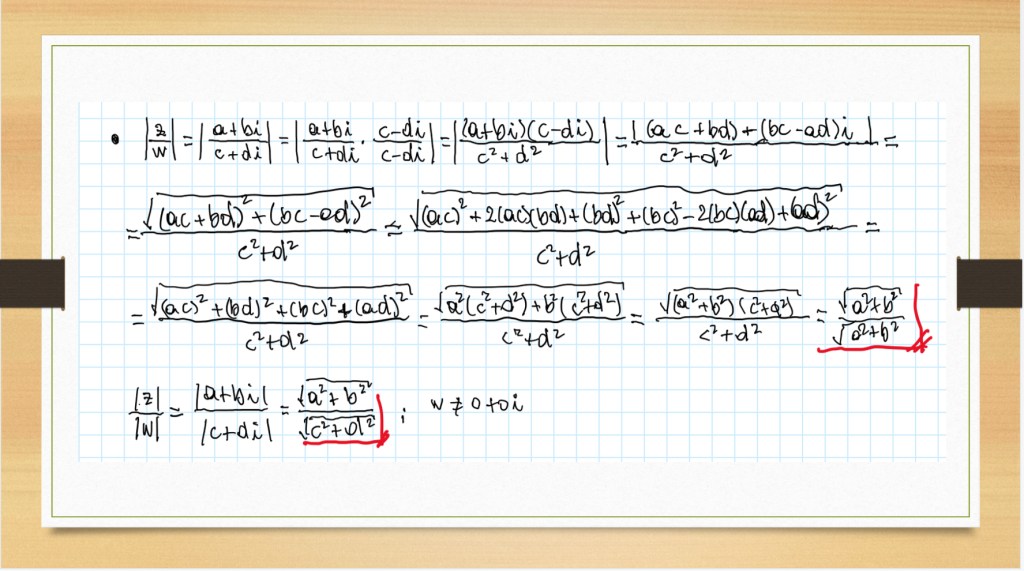 • |z/w| = |(a+bi)/(c+di)| = |(a+bi)/(c+di) · (c-di)/(c-di)| = |(a+bi)(c-di)/(c²+d²)| = |(ac+bd)+(bc-ad)i|/(c²+d²) =
= √((ac+bd)²+(bc-ad)²)/(c²+d²) = √((ac)²+2(ac)(bd)+(bd)²+(bc)²-2(bc)(ad)+(ad)²)/(c²+d²) =
= √((ac)²+(bd)²+(bc)²+(ad)²)/(c²+d²) = √(a²(c²+d²)+b²(c²+d²))/(c²+d²) = √((a²+b²)(c²+d²))/(c²+d²) = √(a²+b²)/√(a²+b²)
|z|/|w| = |a+bi|/|c+di| = √(a²+b²)/√(c²+d²) ; w ≠ 0+0i